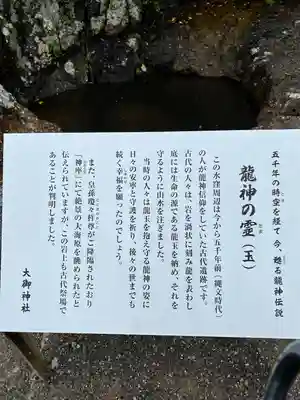 五千年の時空を経て 今、甦る龍神伝説
龍神の霊（玉）
この水窪周辺は今から五千年前（縄文時代）
の人が龍神信仰をしていた古代遺跡です。
古代の人々は、岩を渦状に刻み龍を表わし
底には生命の源である龍玉を納め、それを
守るように山水を注ぎました。
当時の人々は龍玉を抱え守る龍神の姿に
日々の安寧と守護を祈り、後々の世までも
続く幸福を願ったのでしょう。
また、皇孫瓊々杵尊がご降臨されたおり
「神座」にて絶景の大海原を眺められたと
伝えられていますが、この岩上も古代祭場で
あることが判明しました。
大御神社